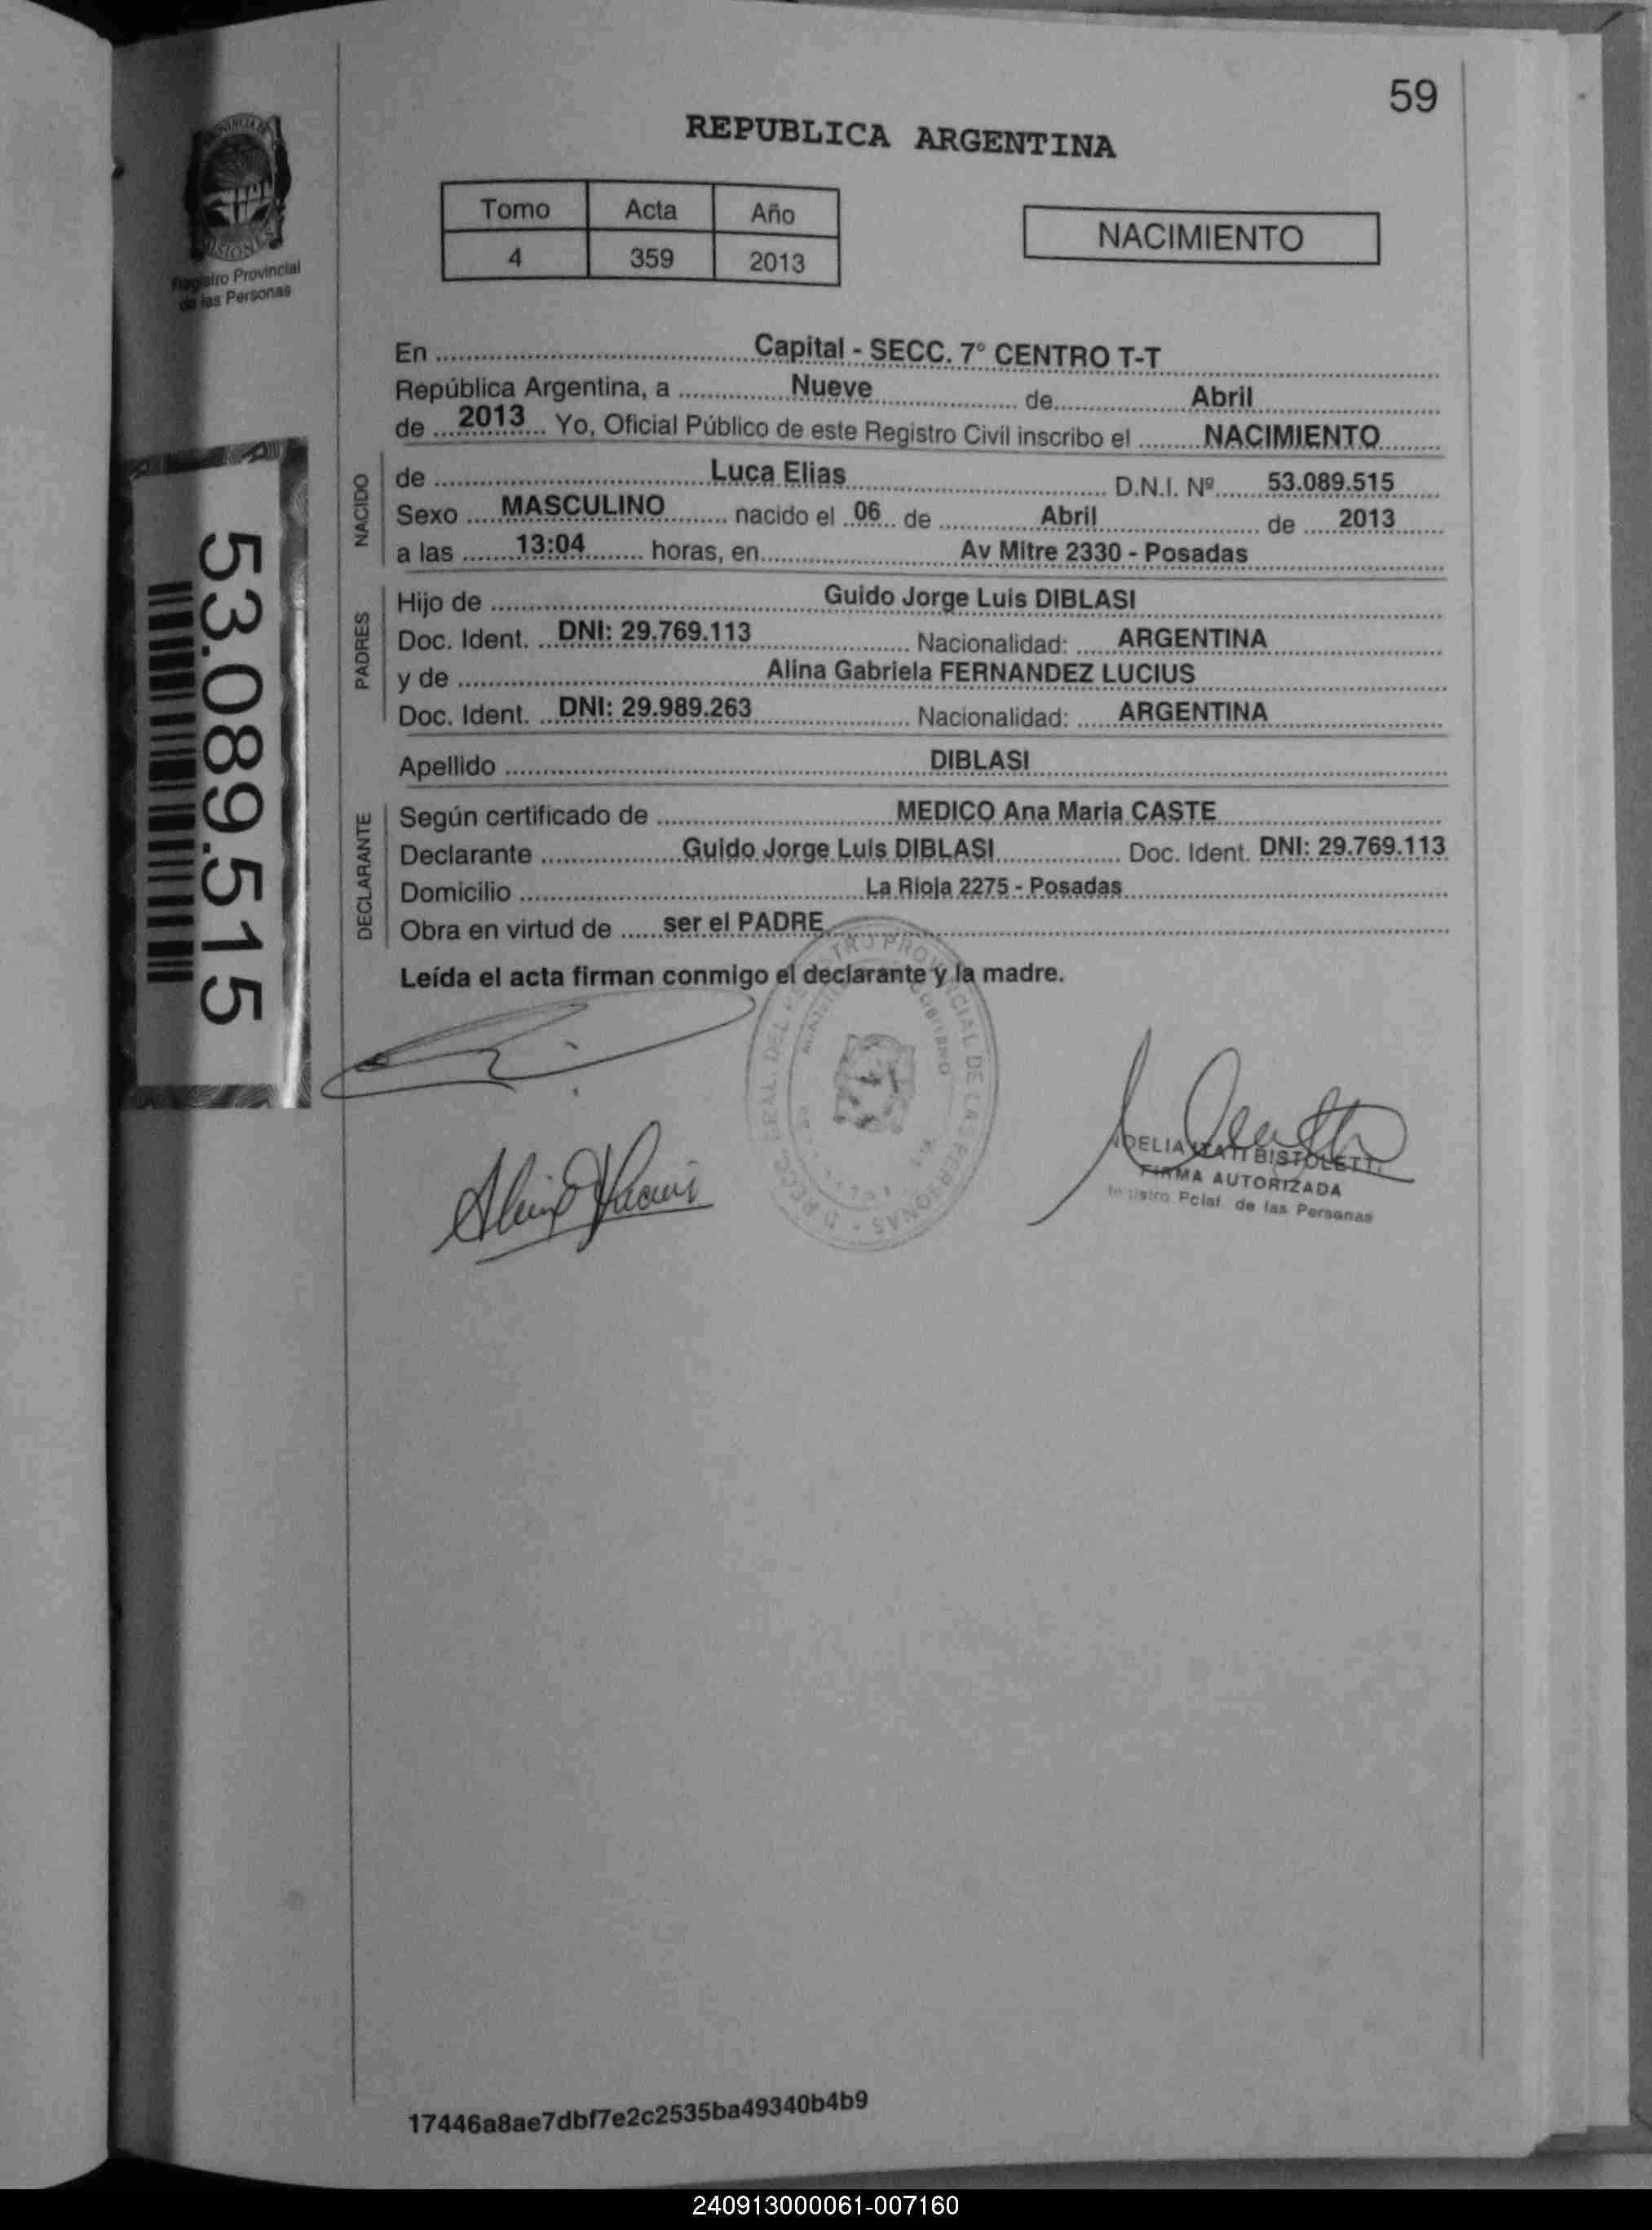 59
REPUBLICA ARGENTINA
Tomo Acta Año
4 359 2013
NACIMIENTO
MISIONES
Registro Provincial
de las Personas
En Capital - SECC. 7° CENTRO T-T
República Argentina, a Nueve de Abril
de 2013 Yo, Oficial Público de este Registro Civil inscribo el NACIMIENTO
NACIDO
de Luca Elias D.N.I. Nº 53.089.515
Sexo MASCULINO nacido el 06 de Abril de 2013
a las 13:04 horas, en Av Mitre 2330 - Posadas
PADRES
Hijo de Guido Jorge Luis DIBLASI
Doc. Ident. DNI: 29.769.113 Nacionalidad: ARGENTINA
y de Alina Gabriela FERNANDEZ LUCIUS
Doc. Ident. DNI: 29.989.263 Nacionalidad: ARGENTINA
Apellido DIBLASI
DECLARANTE
Según certificado de MEDICO Ana Maria CASTE
Declarante Guido Jorge Luis DIBLASI Doc. Ident. DNI: 29.769.113
Domicilio La Rioja 2275 - Posadas
Obra en virtud de ser el PADRE
Leída el acta firman conmigo el declarante y la madre.
53.089.515
PROVINCIAL DE LAS PERSONAS
BISTOLETTI
FIRMA AUTORIZADA
Registro Pcial. de las Personas
17446a8ae7dbf7e2c2535ba49340b4b9
240913000061-007160